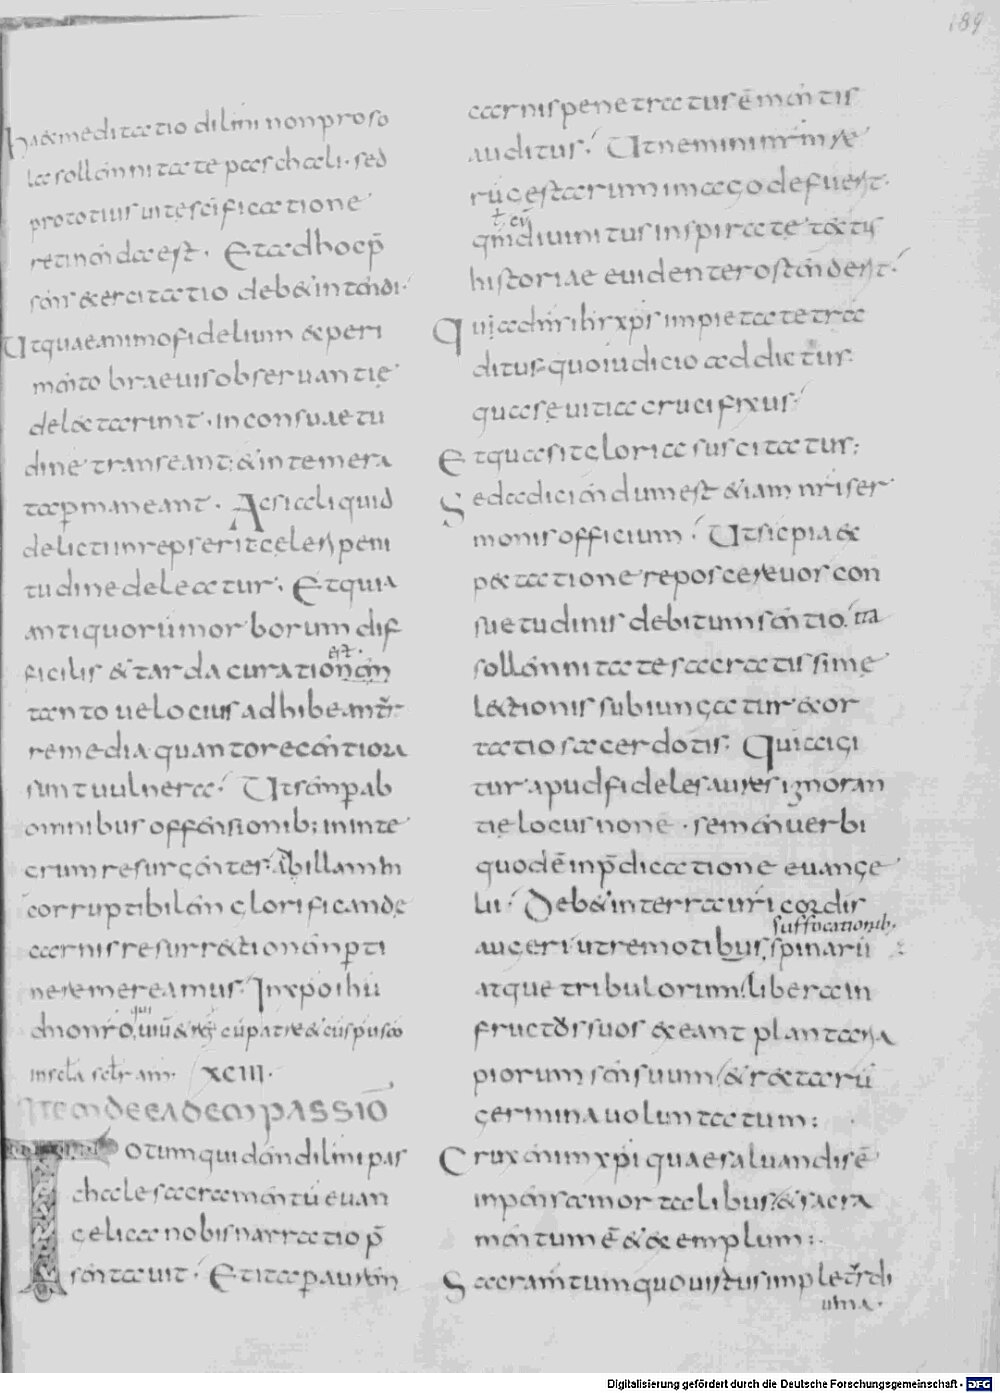 189
haec meditatio dilmi non pro so
la sollemnitate paschali · sed
pro totius uite scificatione
retinenda est · Et ad hoc p̄
sens exercitatio debet intendi ·
Ut quae animo fidelium experi
mento braeuis obseruantie
delectauerint · in consuaetu
dine transeant · et intemera
ta p̱maneant · Ac si aliquid
delicti inrepserit celeri peni
tudine deleatur · Et quia
antiquorū morborum dif
ficilis et tarda curatio est
tanto uelocius adhibeantr̄
remedia quanto recentiora
sunt uulnera · Ut semp̱ ab
omnibus offensionib; in inte
grum resurgentes · ad illam in
corruptibilem glorificande
carnis resurrectionem p̱ti
nere mereamur · In xp̄o ihū
dn̄o nr̄o, qui uiuit & reg̅ cū patre & cū sp̄u sc̄o
in scl̄a scl̄r am̄ · XCIII ·
Item de eadem passiō
Totum quidem dilmi pas
chale sacramentū euan
gelica nobis narratio p̄
sentauit · Et ita p̱ aurem
carnis penetratus ē mentis
auditus · Ut nemini nrm̄ ge
rū gestarum imago defuerit ·
cū
qm̄ diuinitus inspirate textus
historiae euidenter ostenderit ·
Qui ad n̄r ih̄s xp̄s impietate tra
ditus · quo iudicio addictus
qua seuitia crucifixus ·
Et qua sit gloria suscitatus :
Sed adiciendum est etiam nr̄i ser
monis officium · Ut sic pia ex
pectatione reposcere uos con
suetudinis debitum sentio · ita
sollemnitate sacratissime
lectionis subiungatur exor
tatio sacerdotis · Quia igi
tur apud fideles aures ignoran
tie locus non ē · semen uerbi
quod ē in p̄dicatione euange
lii · Debet in terra uri cordis
suffocationib.
augeri ut remotibus, spinarū
atque tribulorum · libera in
fructus suos exeant plantaria
piorum sensuum & rectarū
germina uoluntatum :
Crux enim xp̄i quae saluandis ē
inpensa mortalibus · et sacra
mentum ē et exemplum :
Sacramtum quo uirtus impletr̄ di
uina ·